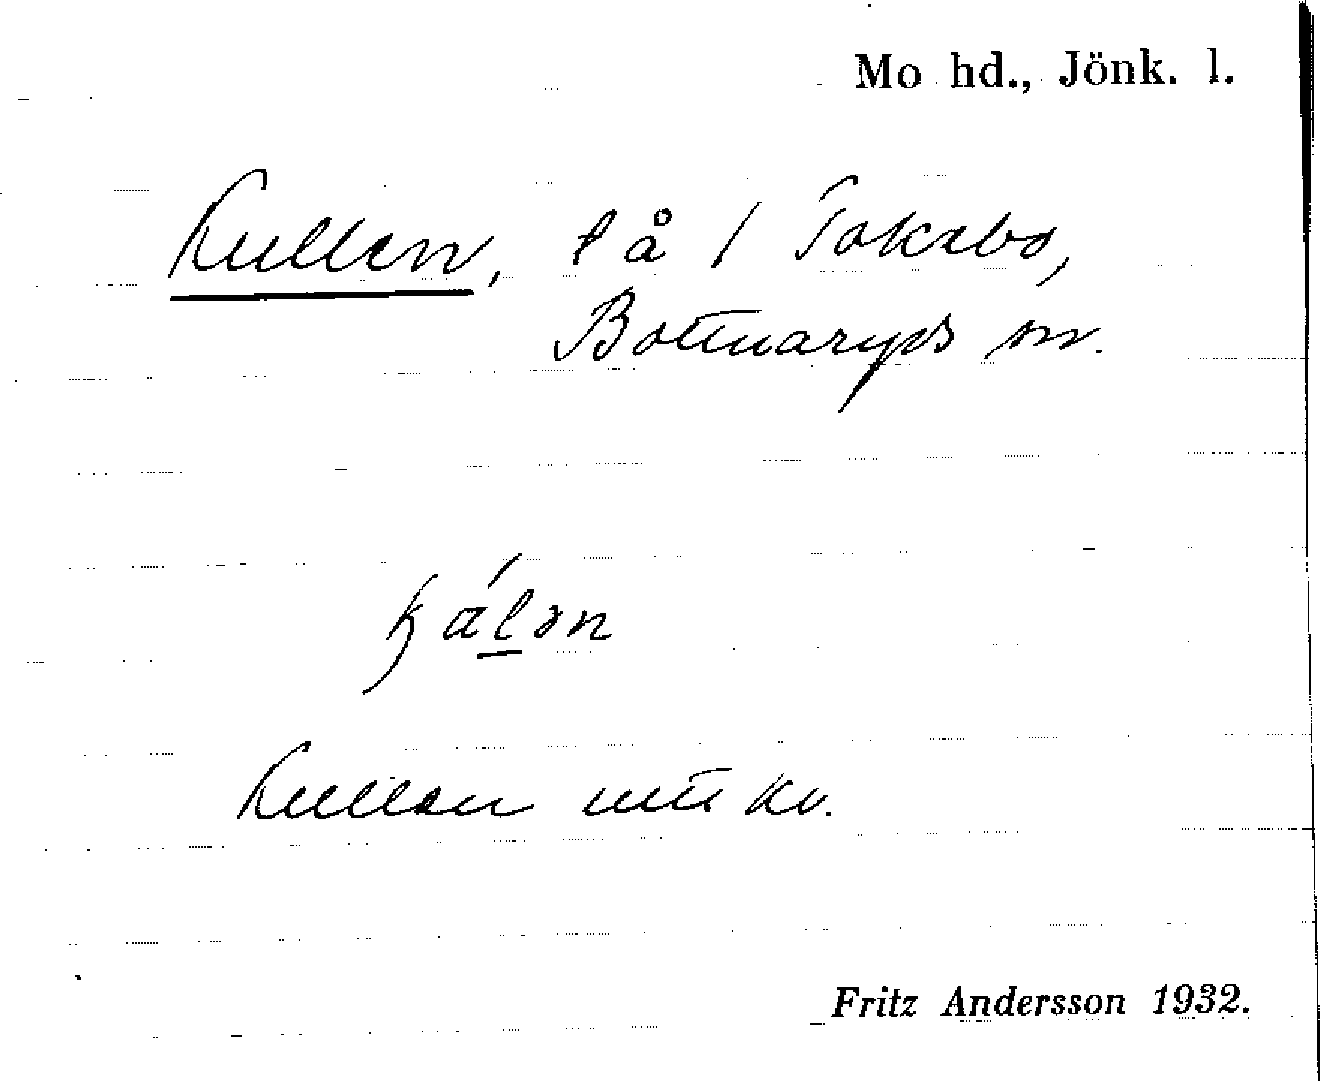 Mo hd., Jönk. l.
Kullen, l å 1 Tokabo,
Bottnaryds sn.
Kullen
Fritz Andersson 1932.